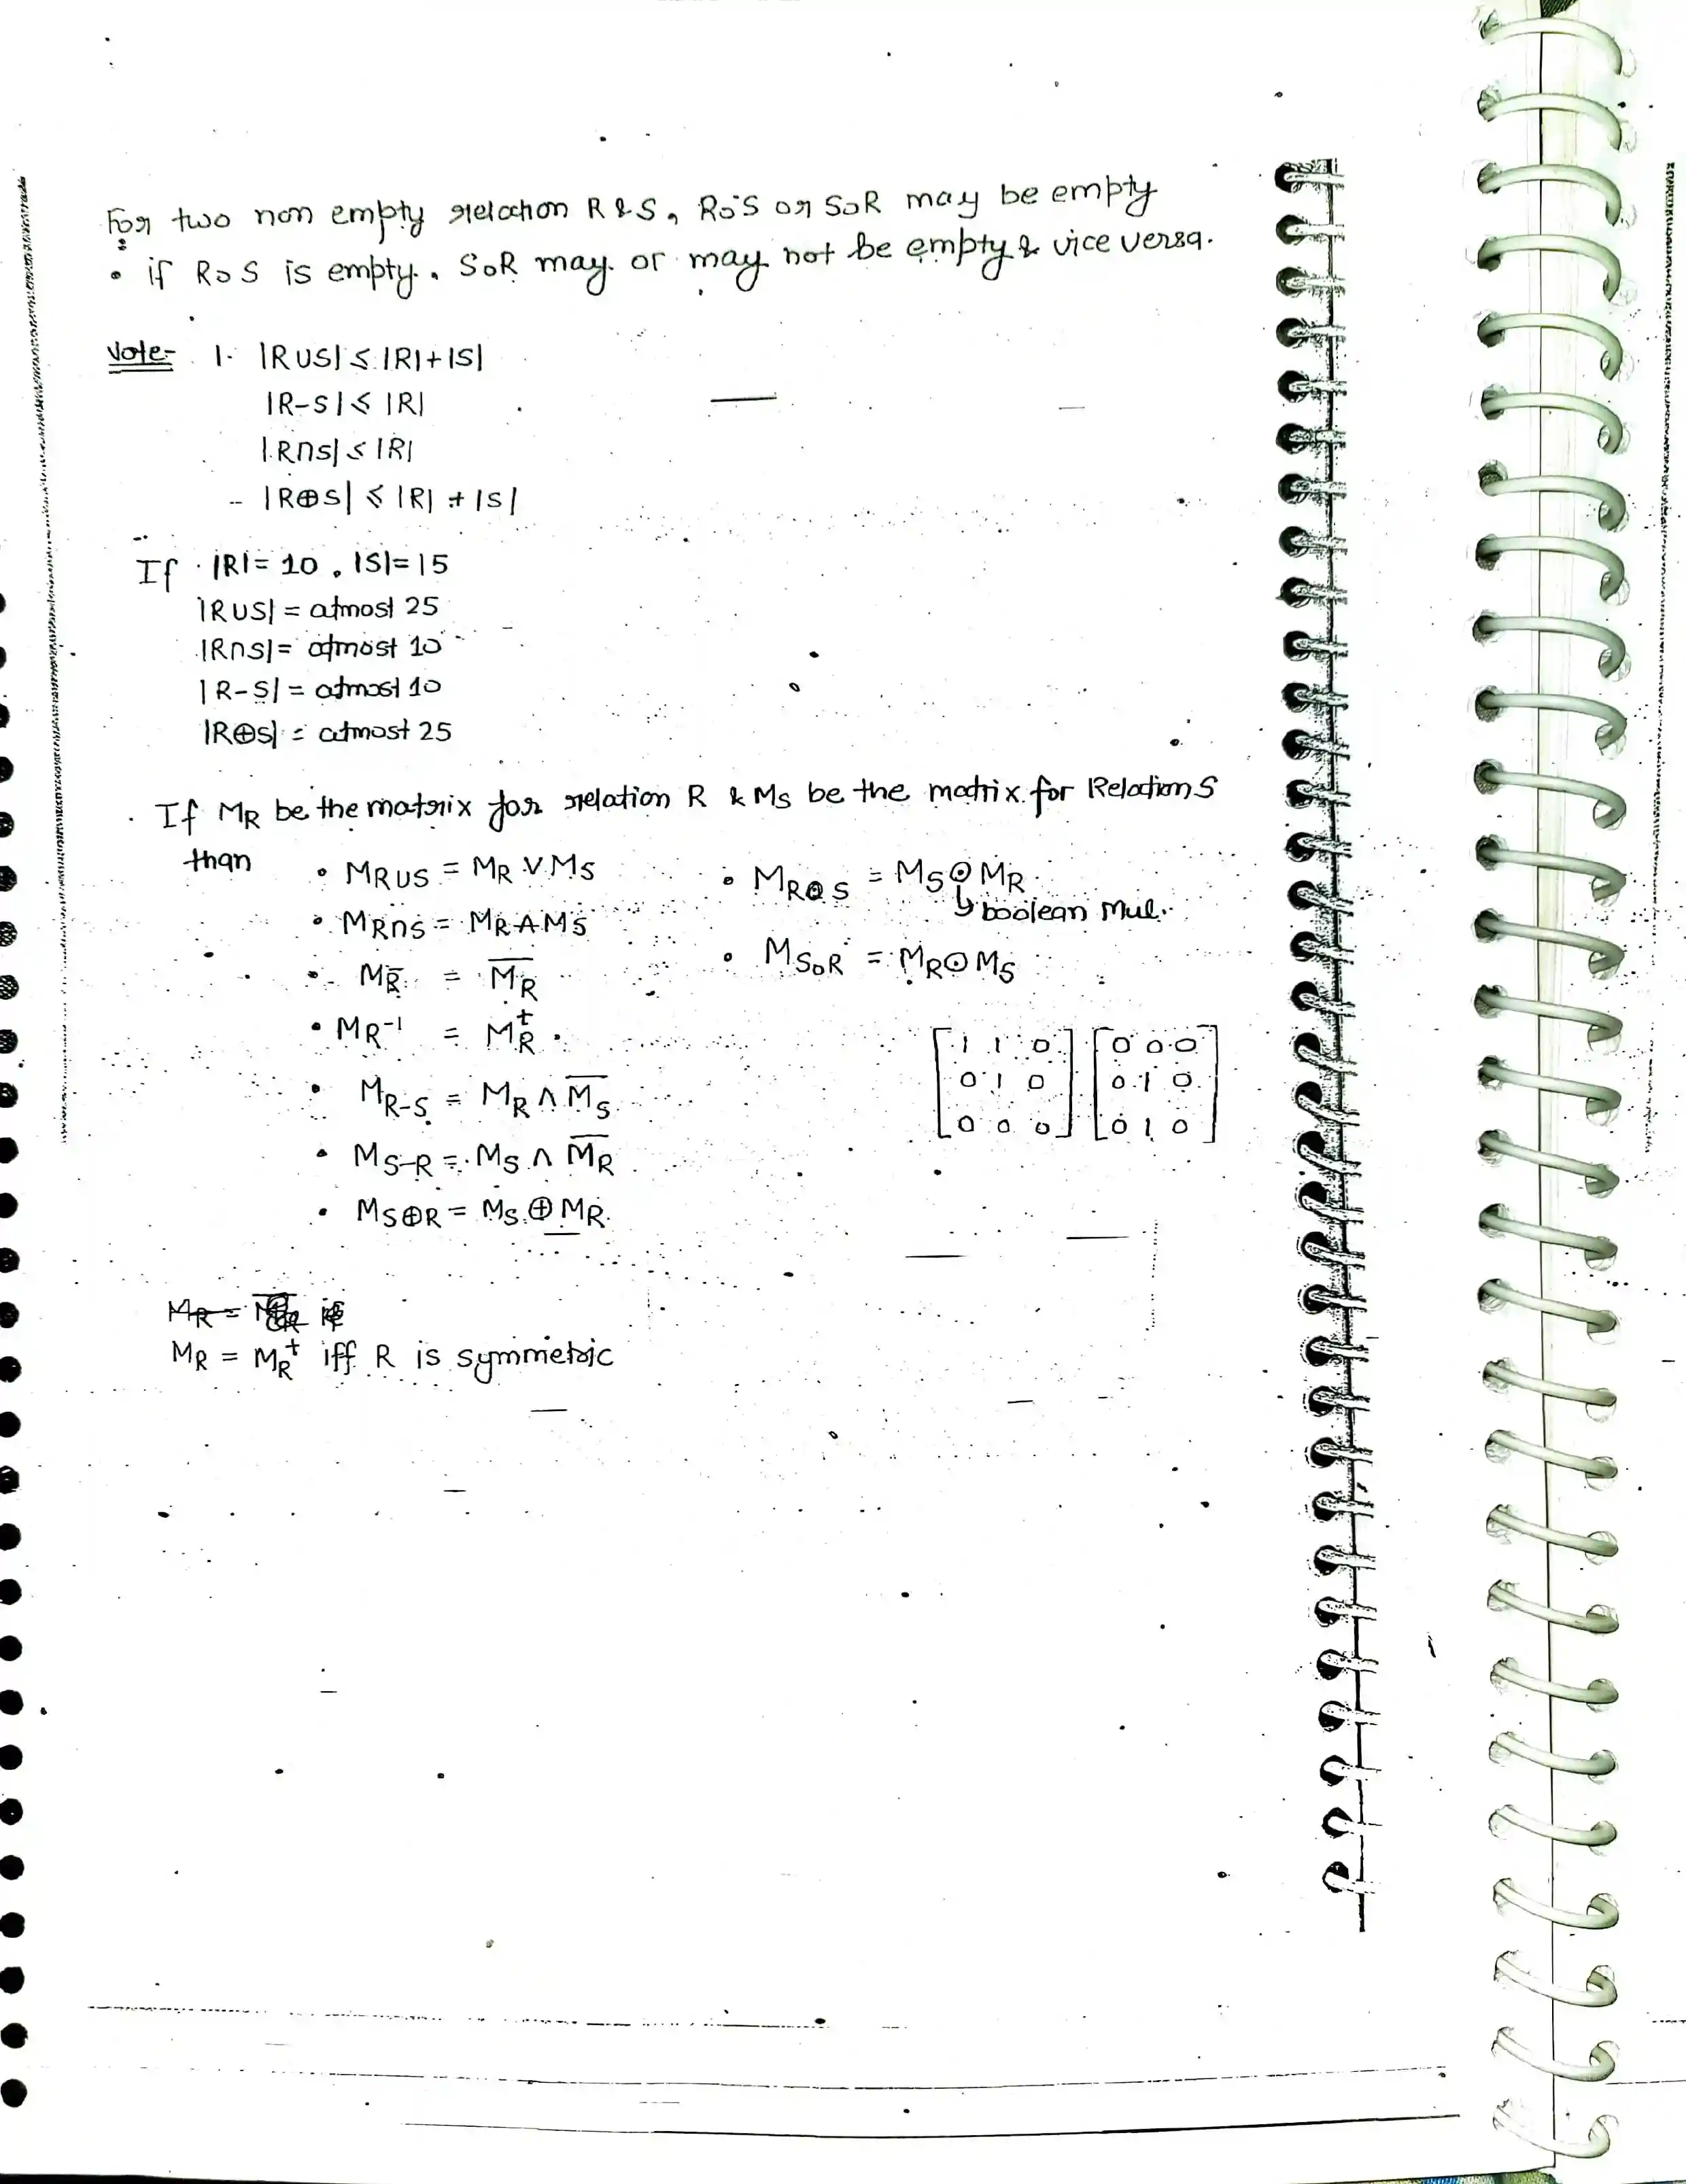 For two non empty relation R & S, RoS or SoR may be empty
• if RoS is empty, SoR may or may not be empty & vice versa.
Note- 1. |R∪S| ≤ |R|+|S|
|R-S| ≤ |R|
|R∩S| ≤ |R|
- |R⊕S| ≤ |R| + |S|
If |R|= 10, |S|=15
|R∪S| = atmost 25
|R∩S| = atmost 10
|R-S| = atmost 10
|R⊕S| = atmost 25
If MR be the matrix for relation R & Ms be the matrix for Relation S
than
• MR∪S = MR ∨ Ms
• MR∩S = MR ∧ Ms
• MR̅ = M̅R̅
• MR⁻¹ = MRᵗ
• MR-S = MR ∧ M̅s̅
• MS-R = Ms ∧ M̅R̅
• MS⊕R = Ms ⊕ MR
• MRoS = Ms ⊙ MR
↳ boolean Mul.
• MSoR = MR ⊙ Ms
[1 1 0] [0 0 0]
[0 1 0] [0 1 0]
[0 0 0] [0 1 0]
MR = MRᵗ iff R is symmetric